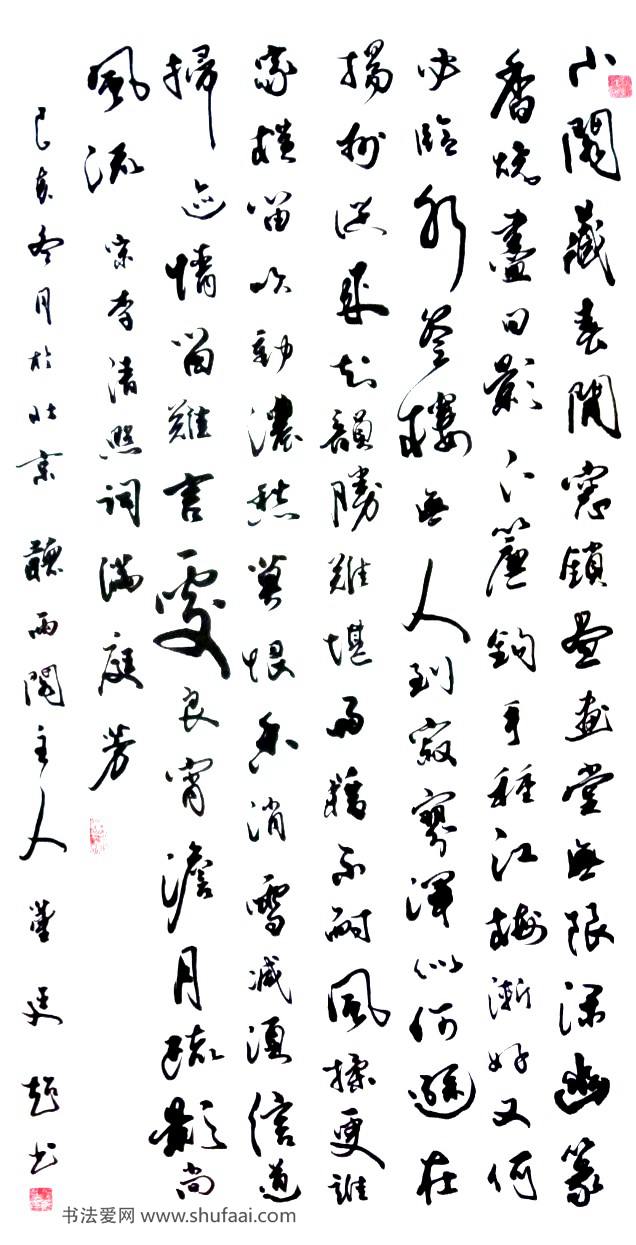 小閣藏春閒窗鎖晝畫堂無限深幽篆
香燒盡日影下簾鉤手種江梅漸好又何
必臨水登樓無人到寂寥渾似何遜在
揚州從來知韻勝難堪雨藉不耐風揉更誰
家橫笛吹動濃愁莫恨香消雪減須信道
掃迹情留難言處良宵澹月疏影尚
風流 宋李清照詞滿庭芳
己亥冬月於北京 聽雨閣主人 书
书法爱网 www.shufaai.com